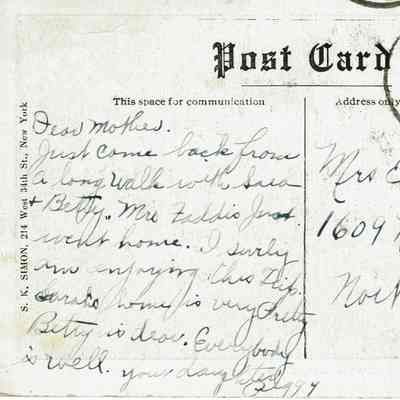 Post Card
This space for communication
Address only
S. K. SIMON, 214 West 34th St., New York
Dear Mother.
Just come back from
a long walk with Sara
& Betty. Mrs Faddis Just
went home. I surly
am enjoying this Trip.
Sarahs home is very Pretty
Betty is dear. Everybody
is well. your daughter
Peggy
Mrs E
1609 N